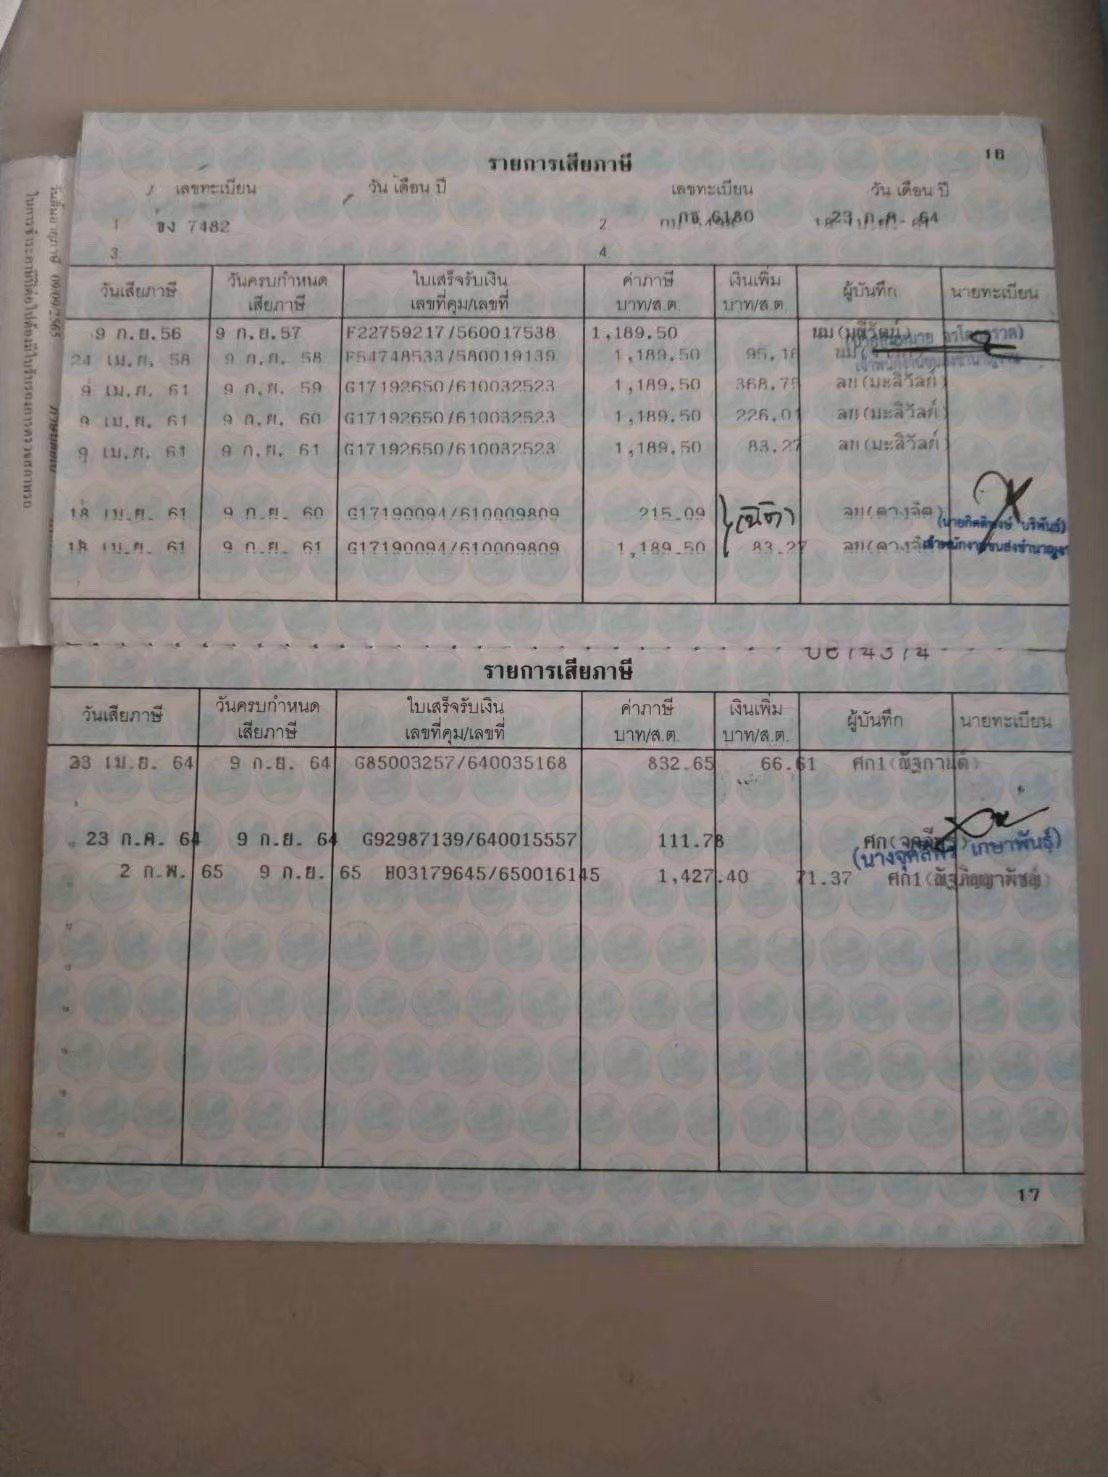 16
รายการเสียภาษี
เลขทะเบียน วัน เดือน ปี เลขทะเบียน วัน เดือน ปี
1. ขง 7482 2. กธ 6180 23 ก.ค. 64
3. 4.
วันเสียภาษี วันครบกำหนดเสียภาษี ใบเสร็จรับเงิน เลขที่คุม/เลขที่ ค่าภาษี บาท/ส.ต. เงินเพิ่ม บาท/ส.ต. ผู้บันทึก นายทะเบียน
9 ก.ย.56 9 ก.ย.57 F22759217/560017538 1,189.50 นม
24 เม.ย. 58 9 ก.ย. 58 F54748533/580019139 1,189.50 95.16 นม
9 เม.ย. 61 9 ก.ย. 59 G17192650/610032523 1,189.50 368.75 ลย(มะลิวัลย์)
9 เม.ย. 61 9 ก.ย. 60 G17192650/610032523 1,189.50 226.01 ลย(มะลิวัลย์)
9 เม.ย. 61 9 ก.ย. 61 G17192650/610032523 1,189.50 83.27 ลย(มะลิวัลย์)
18 เม.ย. 61 9 ก.ย. 60 G17190094/610009809 215.09 ลย(ดวงจิต)
18 เม.ย. 61 9 ก.ย. 61 G17190094/610009809 1,189.50 83.27 ลย(ดวงจิต
รายการเสียภาษี
วันเสียภาษี วันครบกำหนดเสียภาษี ใบเสร็จรับเงิน เลขที่คุม/เลขที่ ค่าภาษี บาท/ส.ต. เงินเพิ่ม บาท/ส.ต. ผู้บันทึก นายทะเบียน
23 เม.ย. 64 9 ก.ย. 64 G85003257/640035168 832.65 66.61 ศก1(ณัฐกานต์)
23 ก.ค. 64 9 ก.ย. 64 G92987139/640015557 111.78 ศก
2 ก.พ. 65 9 ก.ย. 65 H03179645/650016145 1,427.40 71.37 ศก1
17